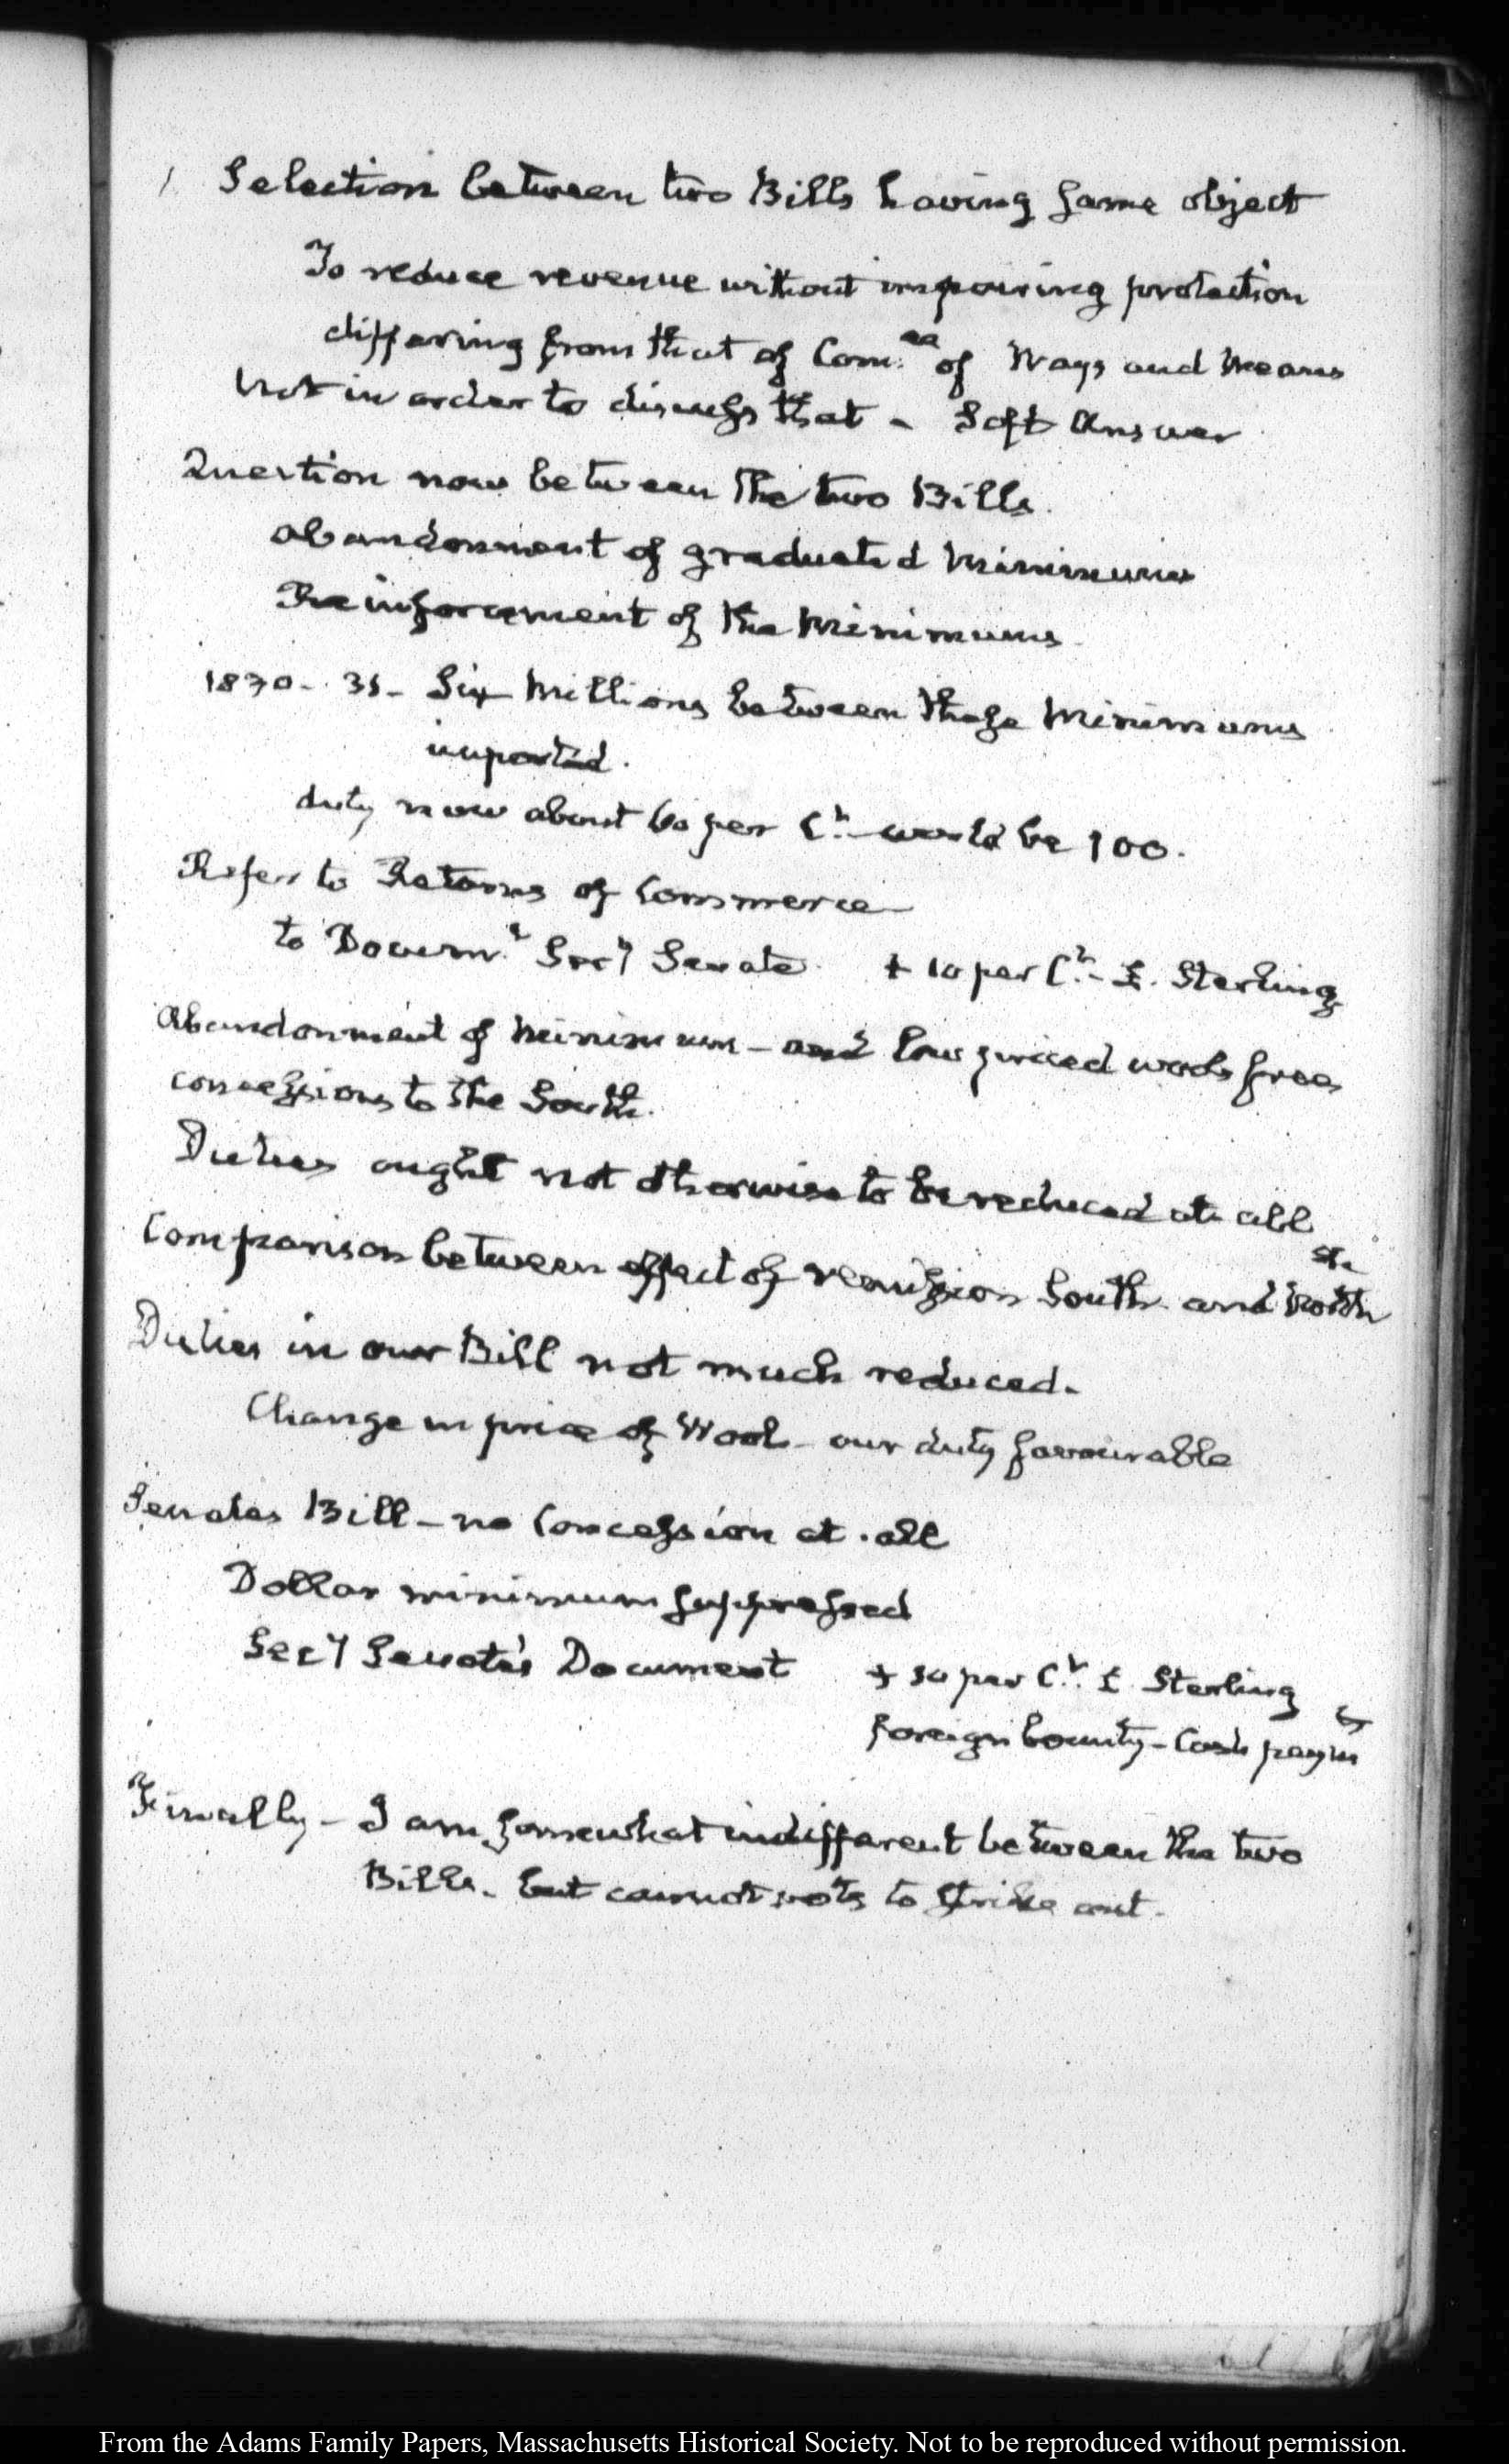 1. Selection between two Bills having same object
To reduce revenue without impairing protection
differing from that of Com.ee of Ways and Means
Not in order to discuss that - Soft Answer
Question now between the two Bills.
abandonment of graduated minimums
Reinforcement of the Minimums.
1830-31- Six Millions between these Minimums
imported.
duty now about 60 per Ct. would be 100.
Refer to Returns of Commerce
to Govern.t Secy Senate + 10 per Ct.- £. Sterling
Abandonment of Minimum - and low priced wools free
concessions to the South.
Duties ought not otherwise to be reduced at all
Comparison between effect of remission South and North
Duties in our Bill not much reduced.
Change in price of Wool - our duty favourable
Senates Bill - no Concession at all
Dollar minimum suppressed
Secy Senate's Document + 10 per Ct. £ Sterling
foreign bounty - Cash paymt
Finally - I am somewhat indifferent between the two
Bills. but cannot vote to strike out.
From the Adams Family Papers, Massachusetts Historical Society. Not to be reproduced without permission.